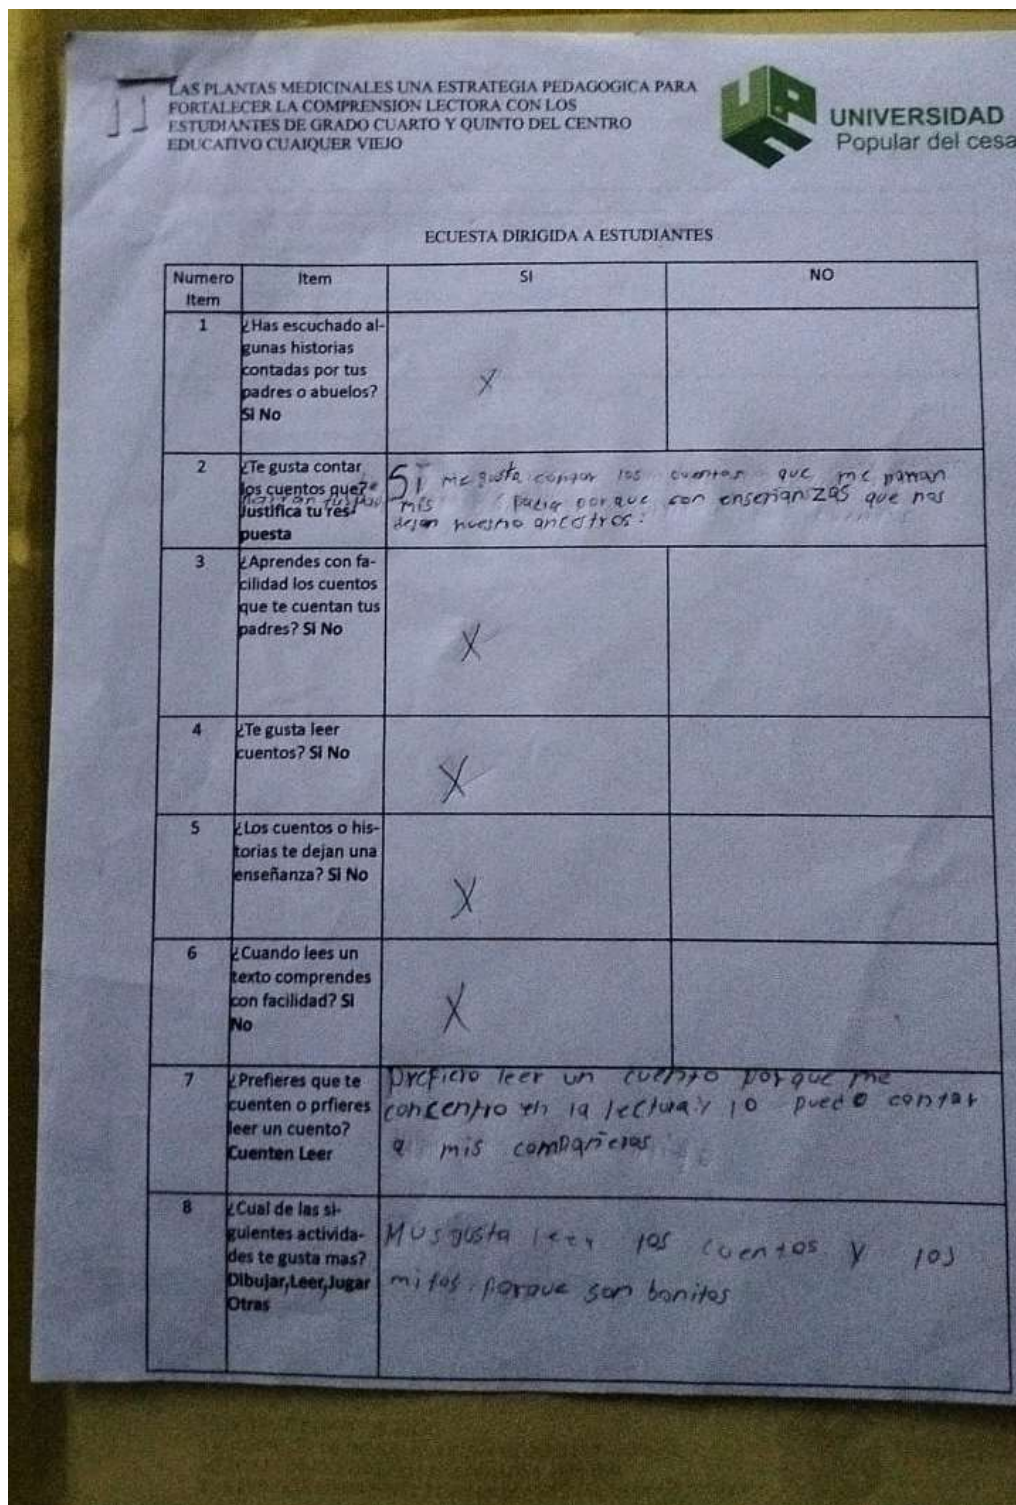 11
LAS PLANTAS MEDICINALES UNA ESTRATEGIA PEDAGOGICA PARA
FORTALECER LA COMPRENSION LECTORA CON LOS
ESTUDIANTES DE GRADO CUARTO Y QUINTO DEL CENTRO
EDUCATIVO CUAIQUER VIEJO
UNIVERSIDAD
Popular del cesa
ECUESTA DIRIGIDA A ESTUDIANTES
Numero Item
Item
SI
NO
1
¿Has escuchado al-
gunas historias
contadas por tus
padres o abuelos?
Si No
X
2
¿Te gusta contar
los cuentos que?
Justifica tu res-
puesta
Si me gusta contar los cuentos que me narran
mis padre porque son enseñanzas que nos
dejan nuestro ancestros.
3
¿Aprendes con fa-
cilidad los cuentos
que te cuentan tus
padres? Si No
X
4
¿Te gusta leer
cuentos? Si No
X
5
¿Los cuentos o his-
torias te dejan una
enseñanza? Si No
X
6
¿Cuando lees un
texto comprendes
con facilidad? Si
No
X
7
¿Prefieres que te
cuenten o prfieres
leer un cuento?
Cuenten Leer
Prefiero leer un cuento porque me
concentro en la lectura y lo puedo contar
a mis compañeros
8
¿Cual de las si-
guientes activida-
des te gusta mas?
Dibujar,Leer,Jugar
Otras
Mus gusta leer los cuentos y los
mitos. porque son bonitos